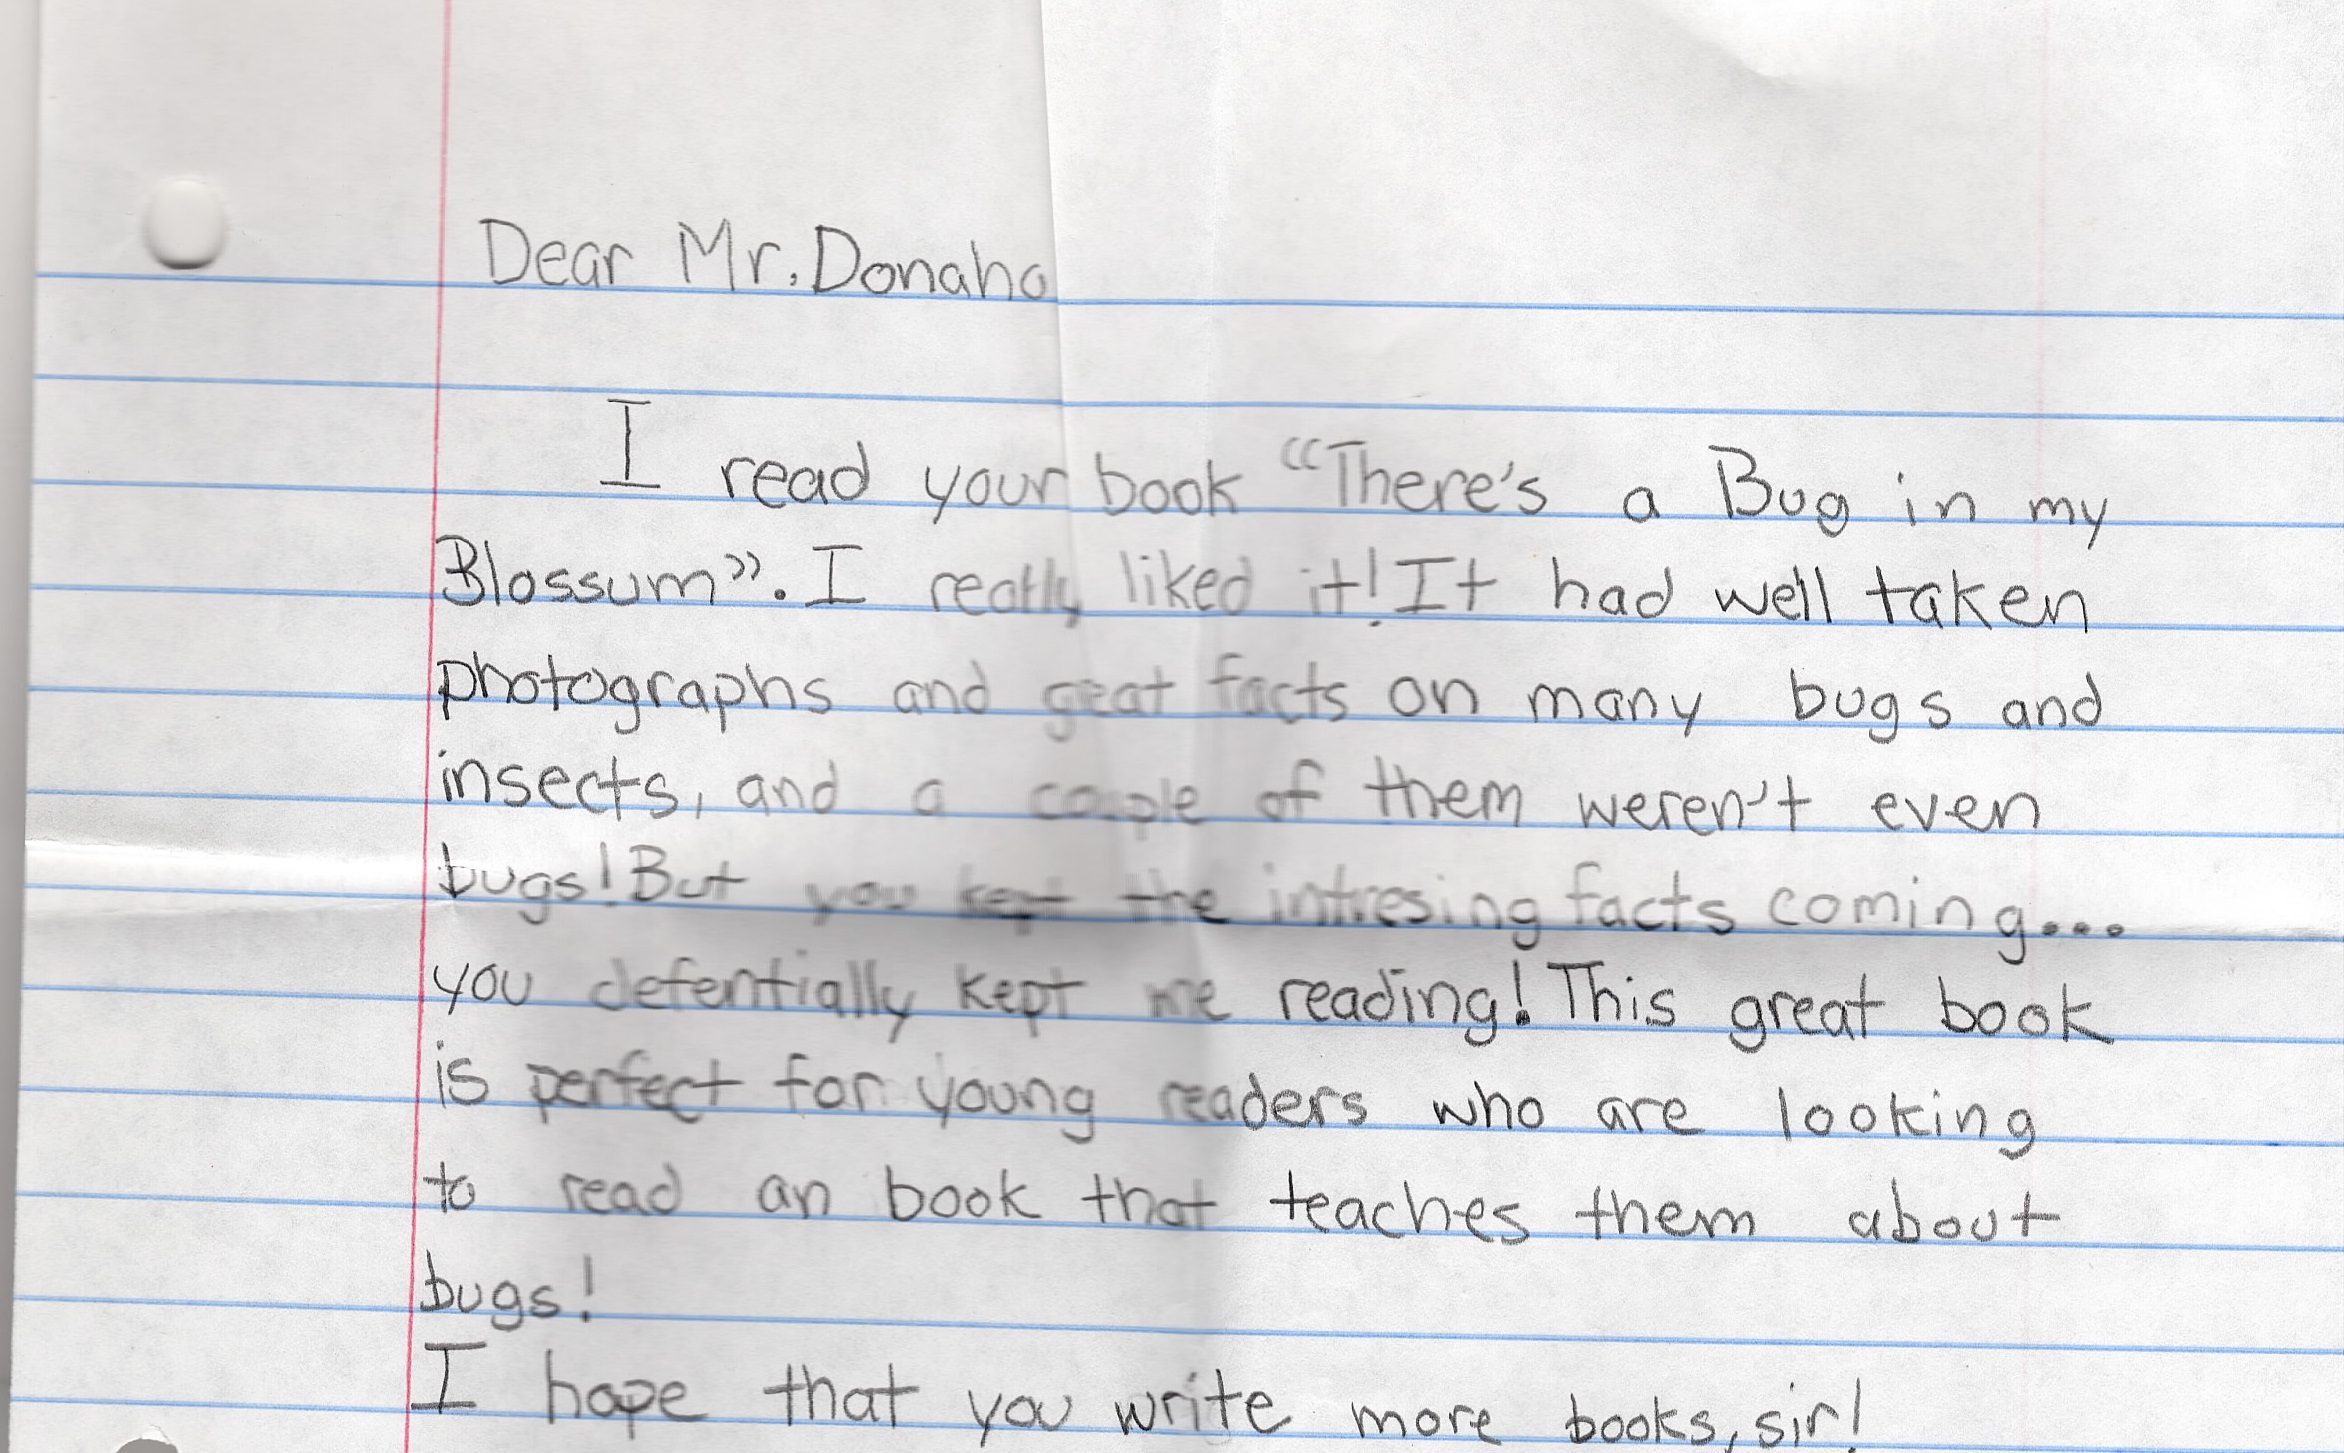 Dear Mr. Donaho
I read your book “There's a Bug in my
Blossum”. I really liked it! It had well taken
photographs and great facts on many bugs and
insects, and a couple of them weren't even
bugs! But you kept the intresing facts coming...
you defentially kept me reading! This great book
is perfect for young readers who are looking
to read an book that teaches them about
bugs!
I hope that you write more books, sir!